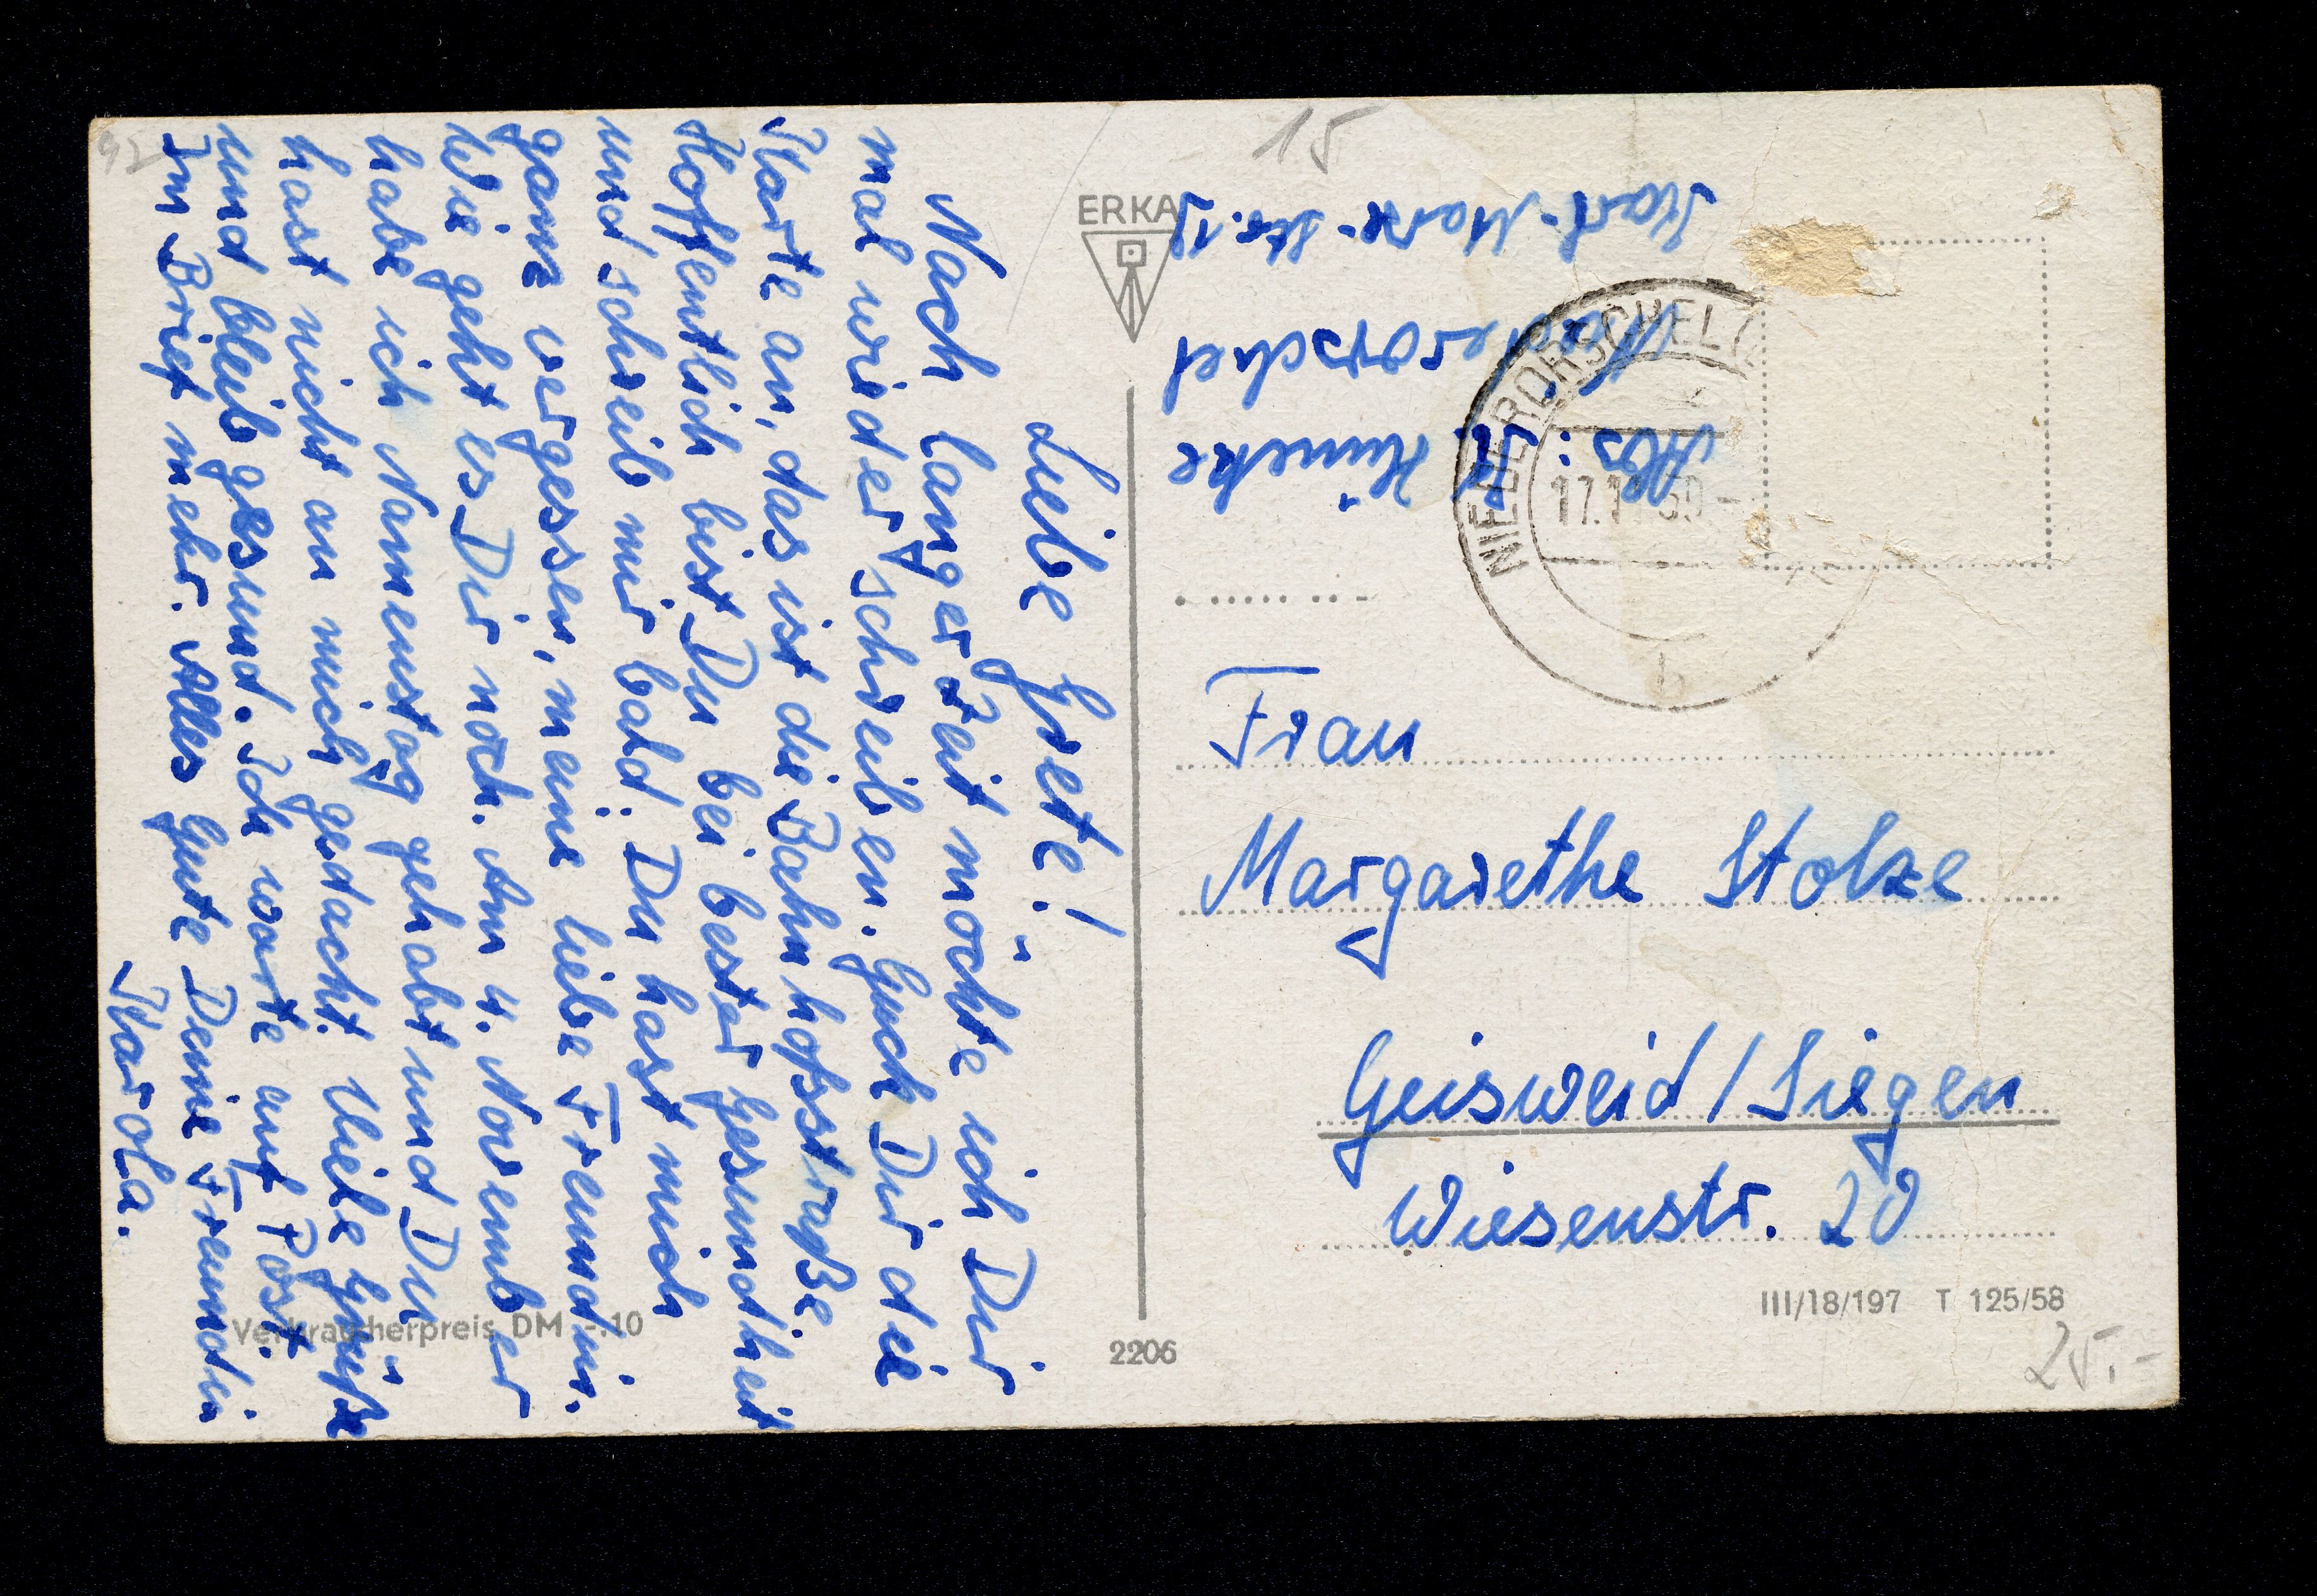 Liebe Grete!
Nach langer Zeit möchte ich Dir
mal wieder schreiben. Guck Dir die
Karte an, das ist die Bahnhofsstraße.
Hoffentlich bist Du bei bester Gesundheit
und schreib mir bald. Du hast mich
ganz vergessen, meine liebe Freundin.
Wie geht es Dir noch. Am 4. November
habe ich Namenstag gehabt und Du
hast nicht an mich gedacht. Viele Grüße
und bleib gesund. Ich warte auf Post.
Im Brief mehr. Alles Gute Deine Freundin
Karola.
Verbraucherpreis DM -.10
ERKA
2206
15
Abs.: K.
Niederorschel
Karl-Marx-Str.
NIEDERORSCHEL
b
Frau
Margarethe Stolze
Geisweid/Siegen
Wiesenstr. 20
III/18/197 T 125/58
25.-